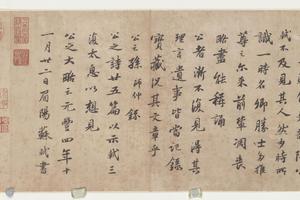 軾不及見其人然少時所
識一時名卿勝士多推
尊之尔來前輩凋喪
略盡能稱誦
公者漸不復見得其
理言遺事皆當記錄
寶藏況其文章乎
公之孫師仲錄
公之詩廿五篇以示軾三
復太息以想見
公之大略云元豐四年十
一月廿二日眉陽蘇軾書